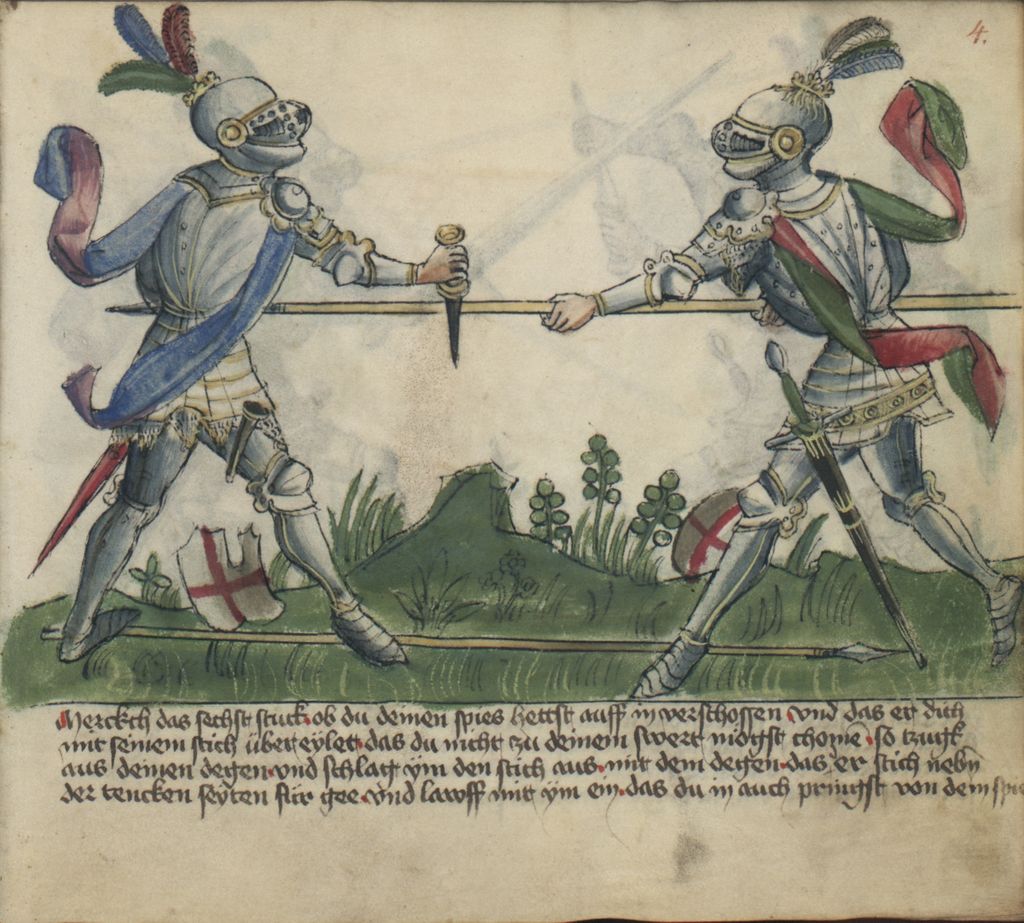 4.
Merckch das sechst stuck ob du deinen spies hettst auff in verschossen vnd das er dich
mit seinem stich übereylet das du nicht zu deinem swert möchst chome so tzuck
aus deinen degen vnd schlach ym den stich aus mit dem degen das er stich nebn
der tencken seyten für gee vnd lawff mit ym ein das du in auch pringst von dem spies